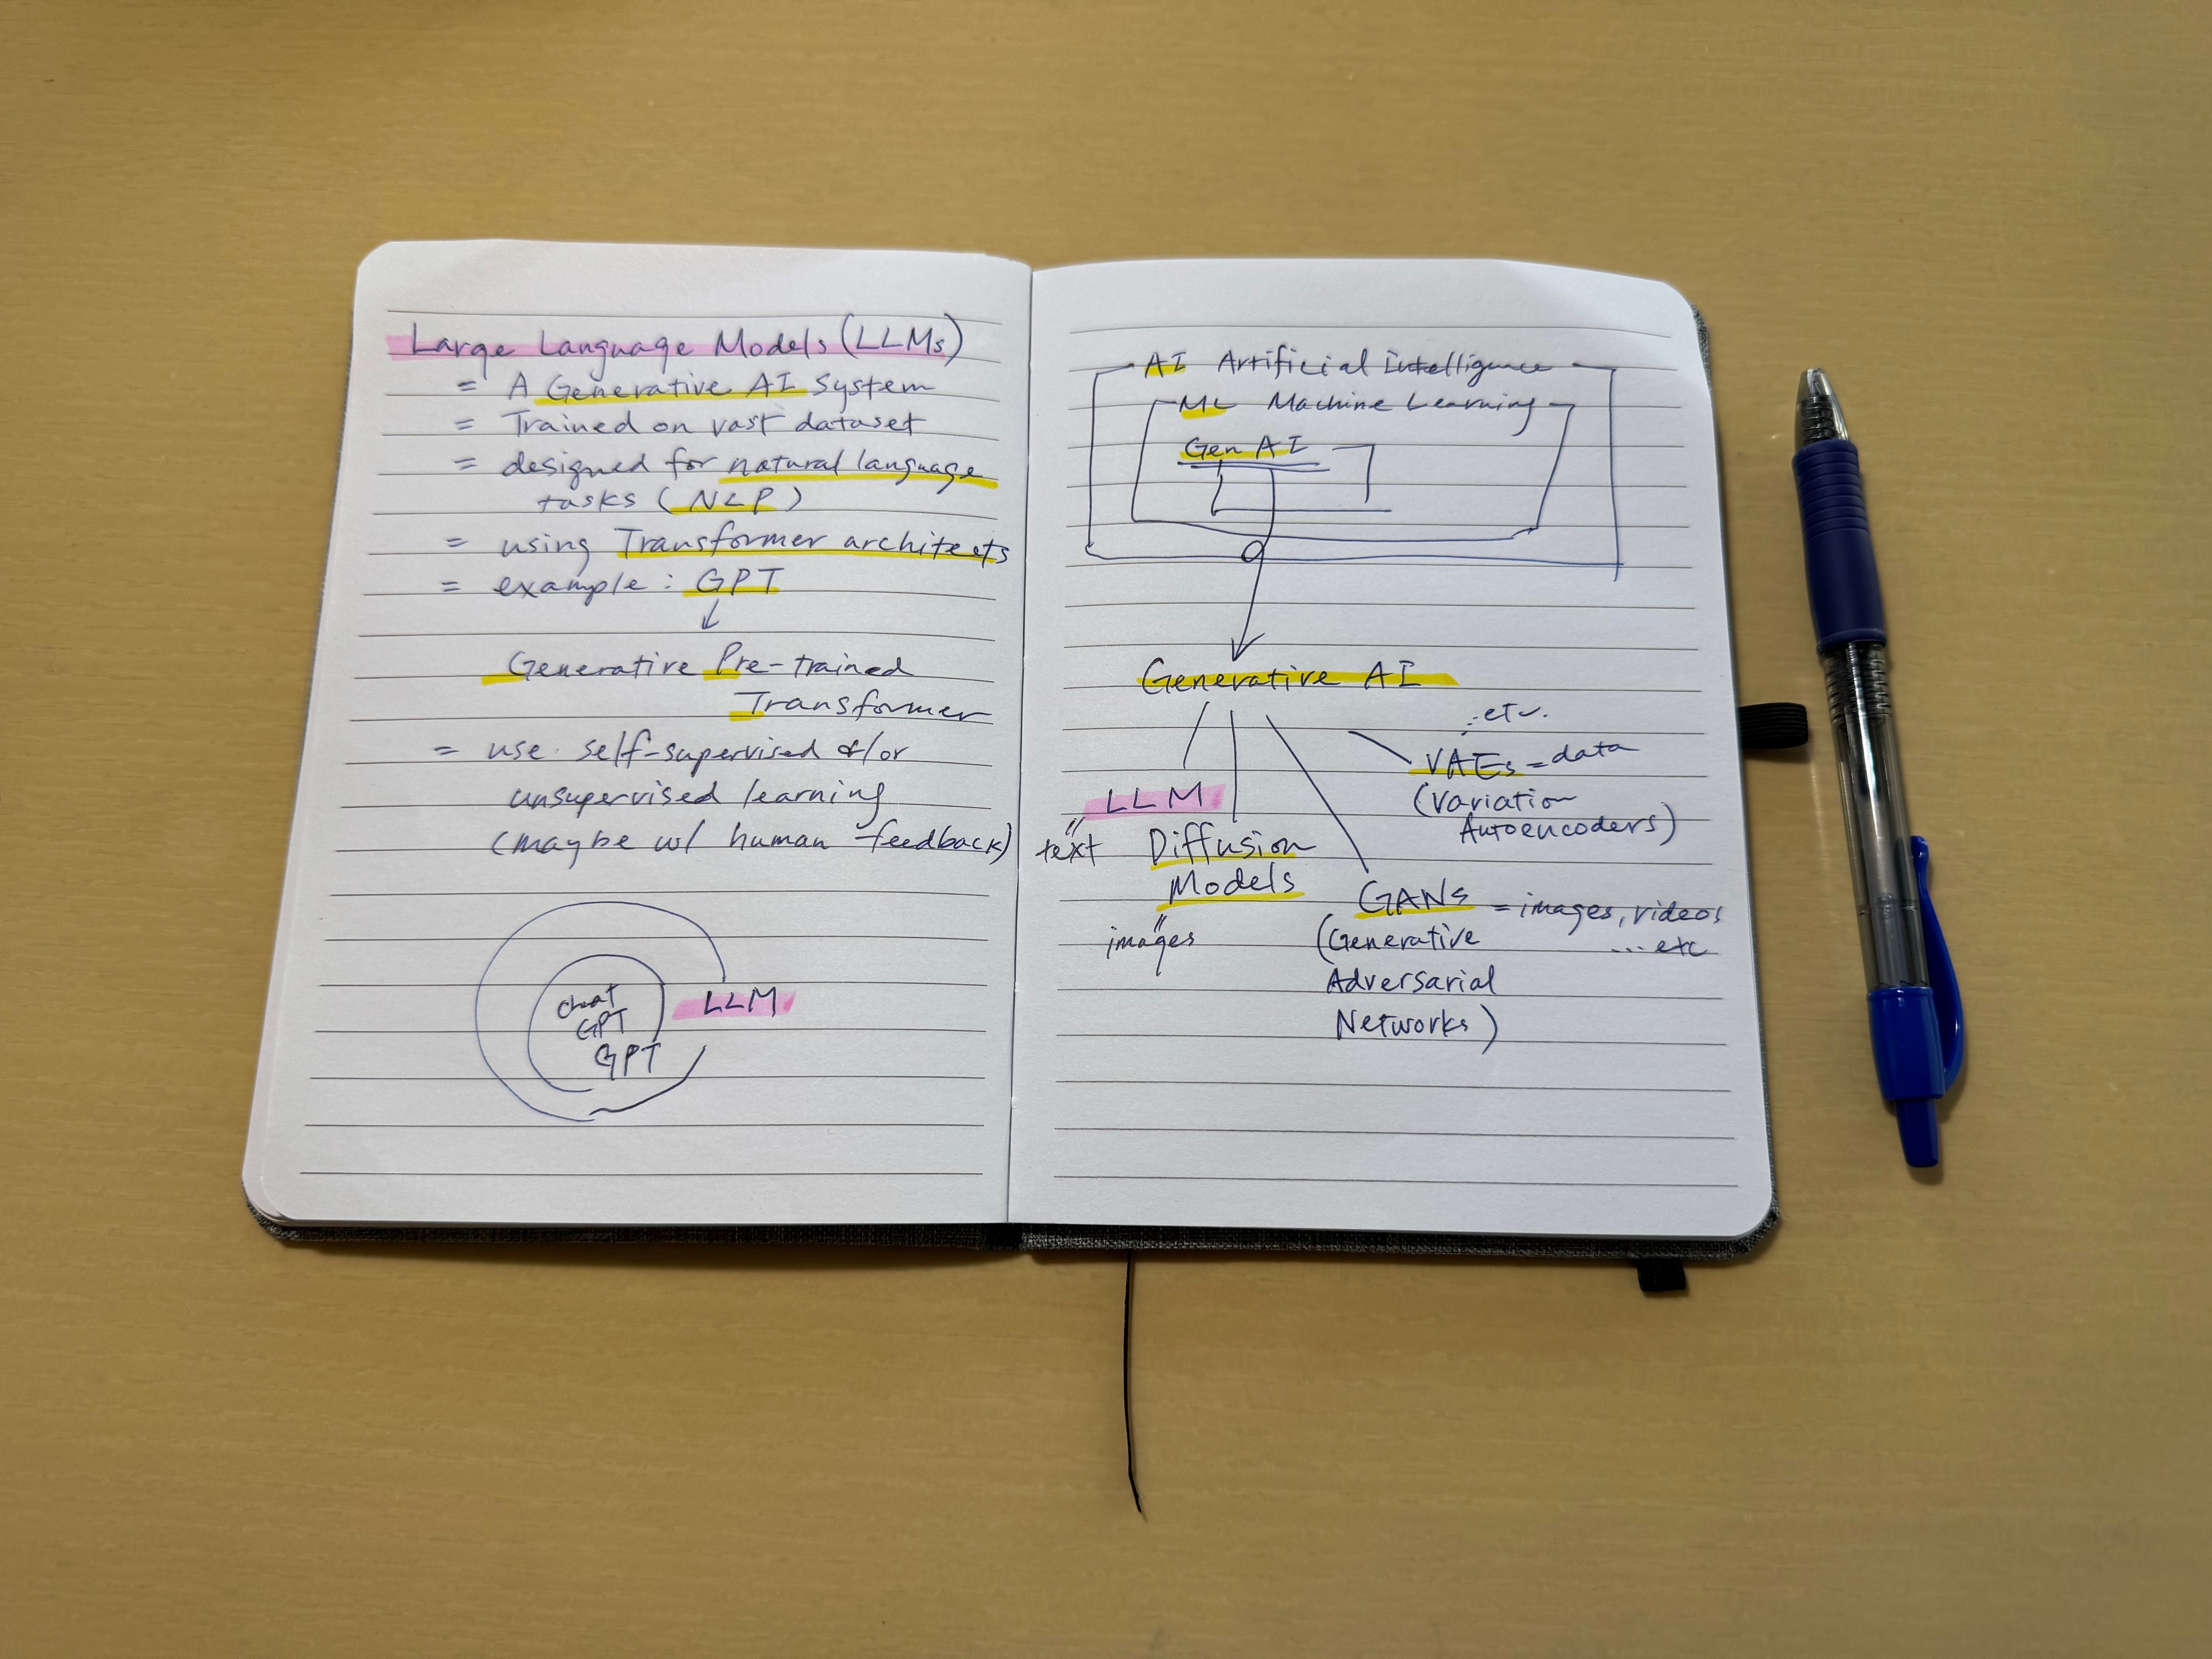 Large Language Models (LLMs)
= A Generative AI System
= Trained on vast dataset
= designed for natural language
tasks (NLP)
= using Transformer architects
= example: GPT
↓
Generative Pre-trained
Transformer
= use self-supervised &/or
unsupervised learning
(maybe w/ human feedback)
Chat
GPT
GPT
LLM
AI Artificial Intelligence
ML Machine Learning
Gen AI
Generative AI
...etc.
VAEs = data
(Variation
Autoencoders)
LLM
"
text
Diffusion
Models
"
images
GANs = images, videos
... etc
(Generative
Adversarial
Networks)